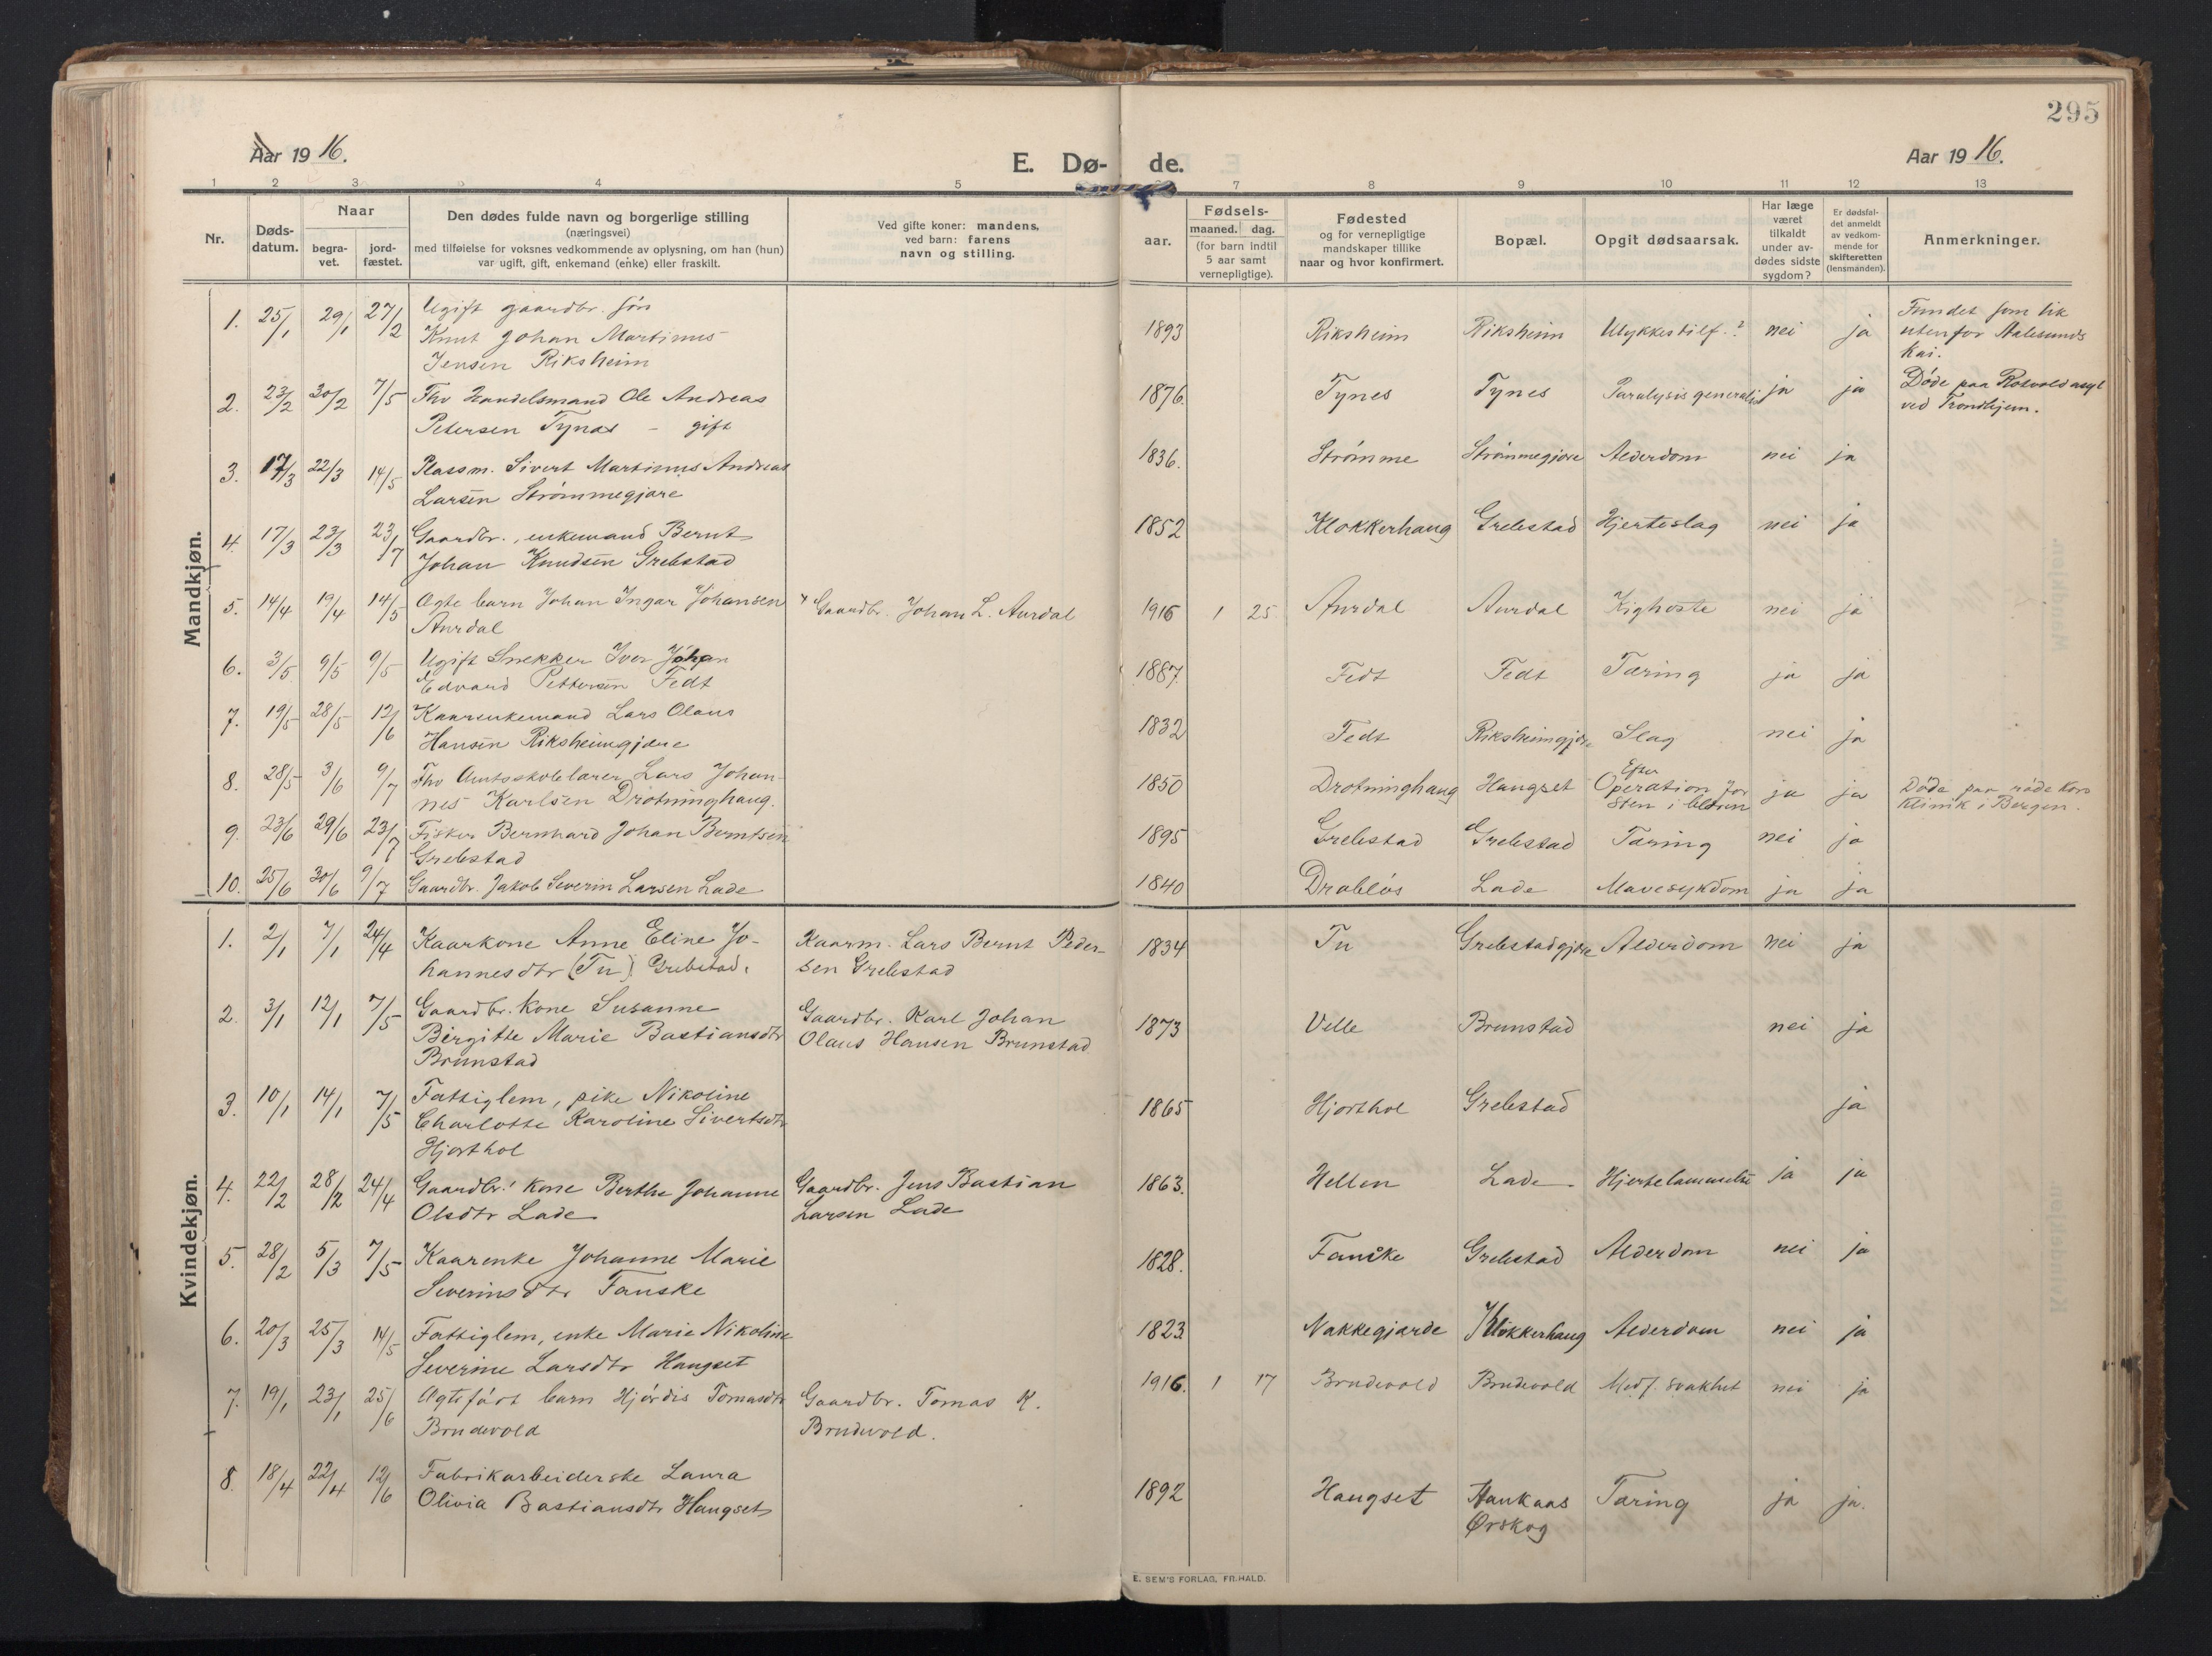 295
Aar 19 16.
E. Dø-
de.
Aar 19 16.
1 2 3 4 5 7 8 9 10 11 12 13
Nr.
Døds-
datum.
Naar
begra-
vet.
jord-
fæstet.
Den dødes fulde navn og borgerlige stilling
(næringsvei)
med tilføielse for voksnes vedkommende av oplysning, om han (hun)
var ugift, gift, enkemand (enke) eller fraskilt.
Ved gifte koner: mandens,
ved barn: farens
navn og stilling.
aar.
Fødsels-
maaned. dag.
(for barn indtil
5 aar samt
vernepligtige).
Fødested
og for vernepligtige
mandskaper tillike
naar og hvor konfirmert.
Bopæl.
Opgit dødsaarsak.
Har læge
været
tilkaldt
under av-
dødes sidste
sygdom?
Er dødsfal-
det anmeldt
av vedkom-
mende for
skifteretten
(lensmanden).
Anmerkninger.
Mandkjøn.
1. 25/1 29/1 27/2 Ugift gaardbr. søn 1893 Riksheim Riksheim Ulykkestilf.? nei ja Fundet som lik
Knut Johan Martinus utenfor Aalesunds
Jensen Riksheim kai.
2. 23/2 30/2 7/5 Fhv Handelsmand Ole Andreas 1876. Tynes Tynes Paralysis generalis ja ja Døde paa Rotvold asyl
Petersen Tynes – gift ved Trondhjem.
3. 17/3 22/3 14/5 Plassm. Sivert Martinus Andreas 1836. Strømme Strømmegjære Alderdom nei ja
Larsen Strømmegjære
4. 17/3 23/3 23/7 Gaardbr., enkemand Bernt 1852 Klokkerhaug Grebstad Hjerteslag nei ja
Johan Knudsen Grebstad
5. 14/4 19/4 14/5 Ægte barn Johan Ingar Johansen Gaardbr. Johan L. Aurdal 1916 1 25 Aurdal Aurdal Kighoste nei ja
Aurdal
6. 3/5 9/5 9/5 Ugift Snekker Iver Johan 1887. Fedt Fedt Tæring ja ja
Edvard Pettersen Fedt
7. 19/5 28/5 12/6 Kaarenkemand Lars Olaus 1832 Fedt Riksheimgjære Slag nei ja
Hansen Riksheimgjære
8. 28/5 3/6 9/7 Fhv Amtsskolelærer Lars Johan- 1850 Drotninghaug Haugset Efter ja ja Døde paa røde kors
nes Karlsen Drotninghaug. Operation for klinik i Bergen.
Sten i blæren
9. 23/6 29/6 23/7 Fisker Bernhard Johan Berntsen 1895 Grebstad Grebstad Tæring nei ja
Grebstad
10. 25/6 30/6 9/7 Gaardbr. Jakob Severin Larsen Lade 1840 Drabløs Lade Mavesykdom ja ja
Kvindekjøn.
1. 2/1 7/1 24/4 Kaarkone Anne Eline Jo- Kaarm. Lars Bernt Peder- 1834 Tu Grebstadgjære Alderdom nei ja
hannesdtr (Tu) Grebstad. sen Grebstad
2. 3/1 12/1 7/5 Gaardbr. kone Susanne Gaardbr. Karl Johan 1873 Velle Brunstad nei ja
Birgitte Marie Bastiansdtr Olaus Hansen Brunstad
Brunstad
3. 10/1 14/1 7/5 Fattiglem, pike Nikoline 1865 Hjorthol Grebstad ja
Charlotte Karoline Sivertsdtr
Hjorthol
4. 22/2 28/2 24/4 Gaardbr. kone Berthe Johanne Gaardbr. Jens Bastian 1863. Hellen Lade Hjertelammelse ja ja
Olsdtr Lade Larsen Lade
5. 28/2 5/3 7/5 Kaarenke Johanne Marie 1828. Fauske Grebstad Alderdom nei ja
Severinsdtr Fauske
6. 20/3 25/3 14/5 Fattiglem, enke Marie Nikoline 1823 Nakkegjærde Klokkerhaug Alderdom nei ja
Severine Larsdtr Haugset
7. 19/1 23/1 25/6 Ægtefødt barn Hjørdis Tomasdtr Gaardbr. Tomas K. 1916. 1 17 Brudevold Brudevold Medf. svakhet nei ja
Brudevold Brudevold.
8. 18/4 22/4 12/6 Fabrikarbeiderske Laura 1892 Haugset Haukaas Tæring ja ja.
Olivia Bastiansdtr Haugset Ørskog
E. SEM'S FORLAG, FR.HALD.